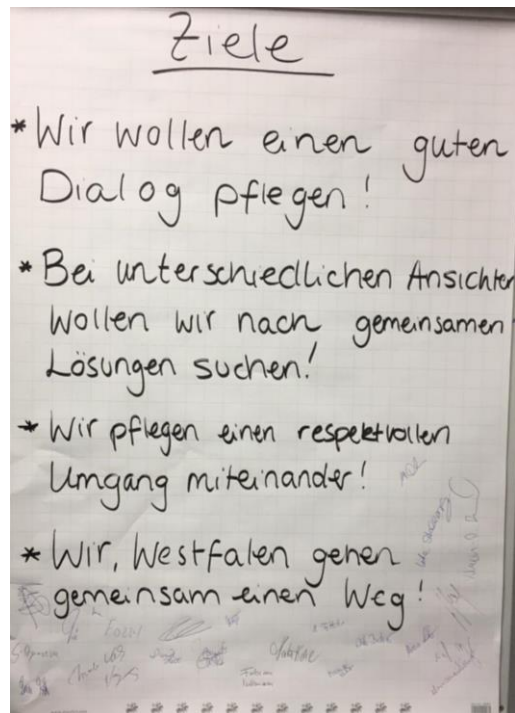 Ziele
* Wir wollen einen guten
Dialog pflegen!
* Bei unterschiedlichen Ansichten
wollen wir nach gemeinsamen
Lösungen suchen!
* Wir pflegen einen respektvollen
Umgang miteinander!
* Wir, Westfalen gehen
gemeinsam einen Weg!